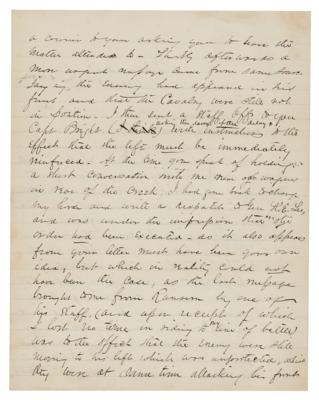 a courier to you asking you to have the
matter attended to - Shortly afterwards a
more urgent message came from same source
saying, the enemy had appeared in his
front and that the Cavalry were still not
in position. I then sent a Staff Offr to you
Capt Bright (I think) with instructions to the
effect that the left must be immediately
reinforced. At the time you speak of holding
a short conversation with me near
in rear of the Creek, I had you back to change
my and write a despatch to Gen R.E. Lee,
and was under the impression this
order had been executed - as it also appears
from your letter must have been your own
idea; but which in reality could not
have been the case, as the last message
brought me from Ransom by one of
his Staff, (and upon receipt of which
I lost no time in riding to line of battle)
was to the effect that the enemy were still
moving to his left which was unprotected, while
they were at same time attacking his front